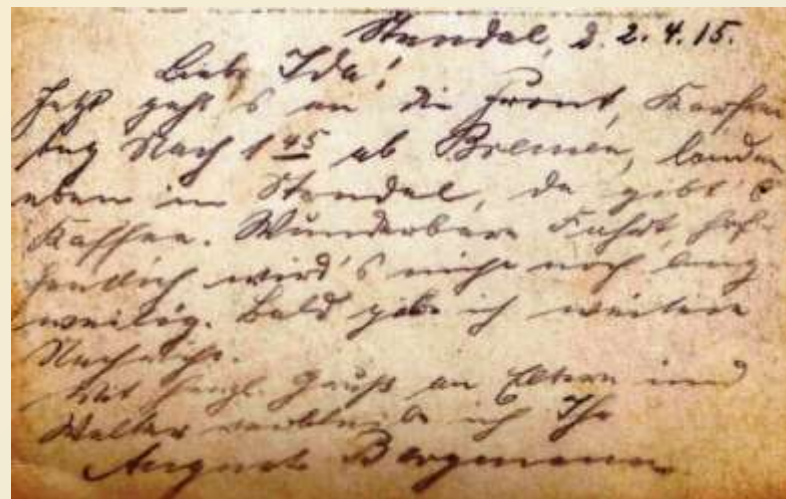 Stendal, d. 2.4.15.
Liebe Ida!
Jetzt geht's an die Front, Karfrei
tag Nach 1 45 ab Bremen, landen
eben in Stendal, da gibt's
Kaffee. Wunderbare Fahrt, hof-
fentlich wird's nicht noch lang
weilig. Bald gebe ich weitere
Nachricht.
Mit herzl. Gruß an Eltern und
Walter verbleibe ich Ihr
August Bergmann